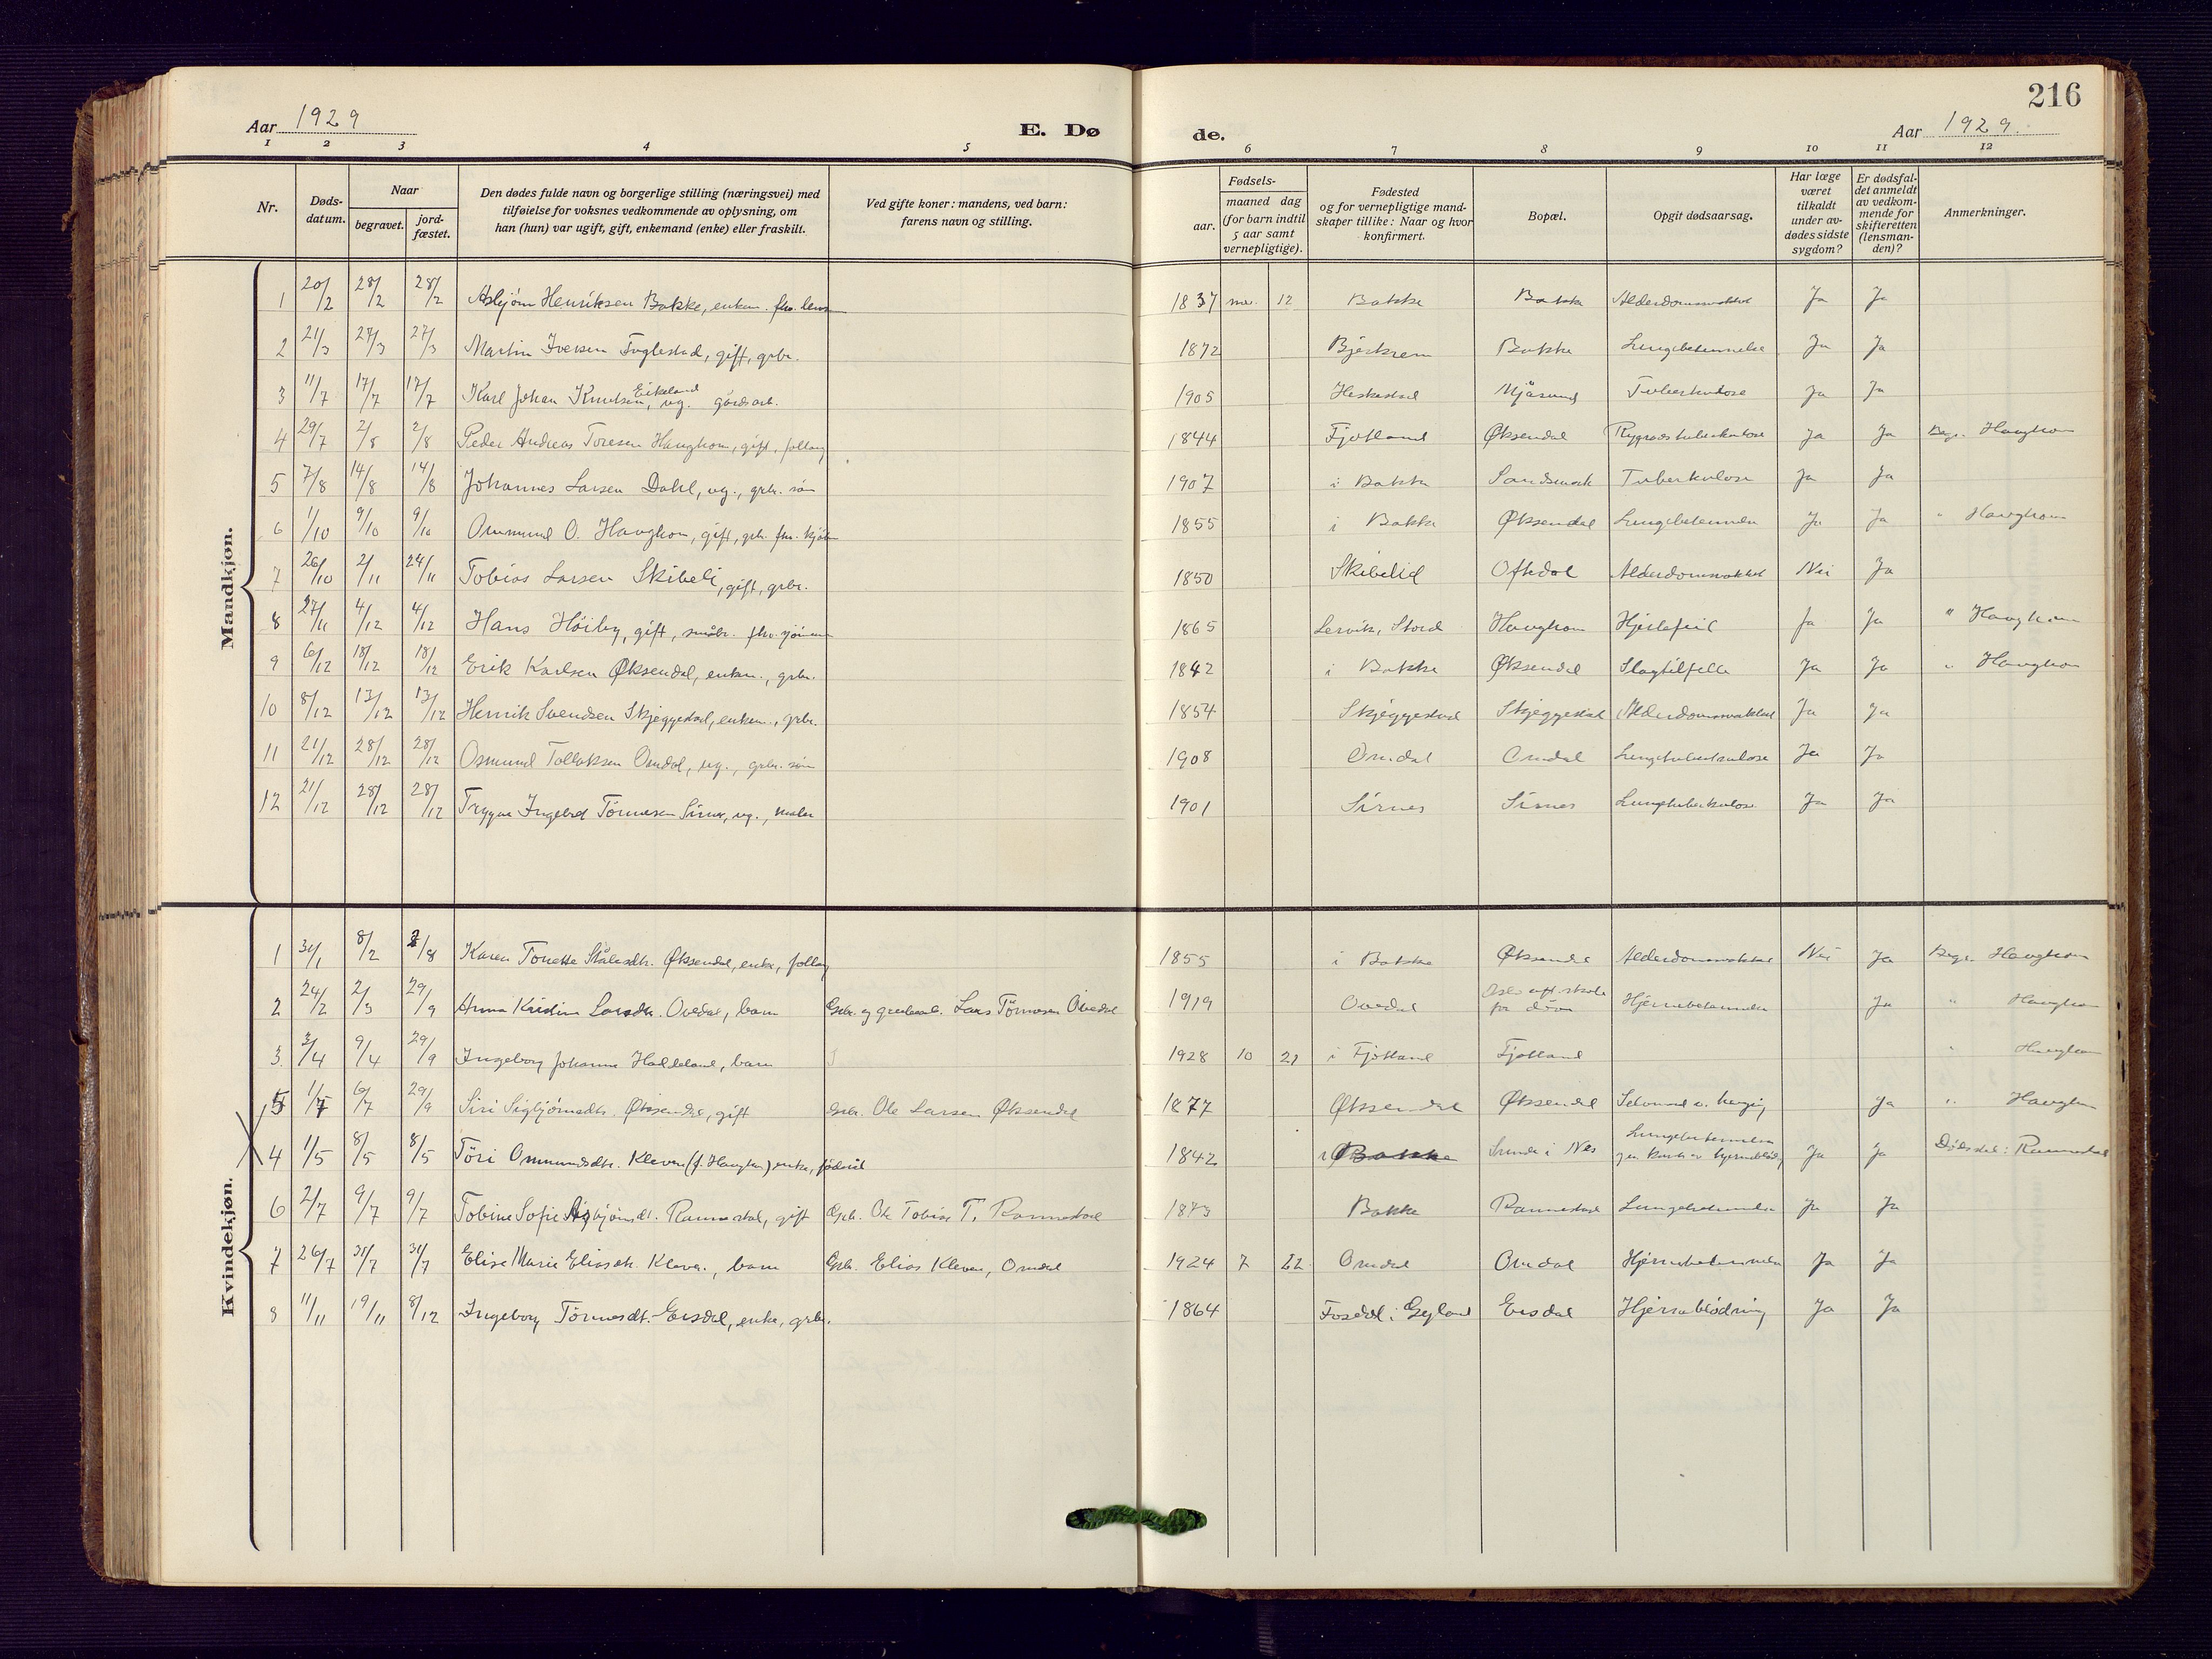 216
Aar 1929
E. Dø
de.
Aar 1929.
1 2 3 4 5 6 7 8 9 10 11 12
Nr.
Døds-
datum.
Naar
begravet.
jord-
fæstet.
Den dødes fulde navn og borgerlige stilling (næringsvei) med
tilføielse for voksnes vedkommende av oplysning, om
han (hun) var ugift, gift, enkemand (enke) eller fraskilt.
Ved gifte koner: mandens, ved barn:
farens navn og stilling.
Fødsels-
aar.
maaned dag
(for barn indtil
5 aar samt
vernepligtige).
Fødested
og for vernepligtige mand-
skaper tillike: Naar og hvor
konfirmert.
Bopæl.
Opgit dødsaarsag.
Har læge
været
tilkaldt
under av-
dødes sidste
sygdom?
Er dødsfal-
det anmeldt
av vedkom-
mende for
skifteretten
(lensman-
den)?
Anmerkninger.
Mandkjøn.
1 20/2 28/2 28/2 Asbjørn Henriksen Bakke, enkem. fhv. lens 1837 12 Bakke Bakke Alderdomssvakhet Ja Ja
2 21/3 27/3 27/3 Martin Iversen Fuglestad, gift, grbr. 1872 Bjerkrem Bakke Lungebetennelse Ja Ja
3 11/7 17/7 17/7 Karl Johan Knutsen Eikeland, ug. gårdsarb. 1905 Heskestad Mjåsund Tuberkulose Ja Ja
4 29/7 2/8 2/8 Peder Andreas Toresen Haughom, gift, follaug 1844 Fjotland Øksendal Rygradstuberkulose Ja Ja Begr. Haughom
5 7/8 14/8 14/8 Johannes Larsen Dahl, ug., grbr. søn 1907 i Bakke Sandsmark Tuberkulose Ja Ja
6 1/10 9/10 9/10 Ommund O. Haughom, gift, grbr. fhv. 1855 i Bakke Øksendal Lungebetennelse Ja Ja " Haughom
7 26/10 2/11 24/11 Tobias Larsen Skibeli, gift, grbr. 1850 Skibelid Oftedal Alderdomssvakhet Nei Ja
8 27/11 4/12 4/12 Hans Höiby, gift, småbr. fhv. sjömann 1865 Lervik, Stord Haughom Hjertefeil Ja Ja " Haughom
9 6/12 18/12 18/12 Erik Karlsen Øksendal, enkem., grbr. 1842 i Bakke Øksendal Slagtilfelle Ja Ja " Haughom
10 8/12 13/12 13/12 Henrik Svendsen Skjeggestad, enkem., grbr. 1854 Skjeggestad Skjeggestad Alderdomssvakhet Ja Ja
11 21/12 28/12 28/12 Osmund Tollaksen Omdal, ug., grbr. søn 1908 Omdal Omdal Lungetuberkulose Ja Ja
12 21/12 28/12 28/12 Trygve Ingebret Tönnesen Sirnes, ug., maler 1901 Sirnes Sirnes Lungetuberkulose Ja Ja
Kvindekjøn.
1 31/1 8/2 8/2 Karen Tonette Ståلesdtr. Øksendal, enke, follaug 1855 i Bakke Øksendal Alderdomssvakhet Nei Ja Begr. Haughom
2 24/2 2/3 29/9 Anna Kristine Larsdtr. Ovedal, barn Grbr. og Lars Tönnesen Ovedal 1919 Ovedal Oslo off. skole for döve Hjernebetennelse Ja " Haughom
3. 3/4 9/4 29/9 Ingeborg Johanne Haddeland, barn 1928 10 21 i Fjotland Fjotland " Haughom
5 1/7 6/7 29/9 Siri Sigbjörnsdtr. Øksendal, gift Grbr. Ole Larsen Øksendal 1877 Øksendal Øksendal Selvmord v. henging Ja " Haughom
4 1/5 8/5 8/5 Töri Ommundsdtr. Kleven (f. Haughom) enke, föderåd 1842 i Bakke Lunde i Nes Lungebetennelse Ja Ja Dödssted: Rannestad
6 2/7 9/7 9/7 Tobine Sofie Asbjörnsdt. Rannestad, gift Grbr. Ole Tobias T. Rannestad 1873 Bakke Rannestad Lungebetennelse Ja Ja
7 26/7 31/7 31/7 Elise Marie Eliasdtr. Kleven, barn Grbr. Elias Kleven, Omdal 1924 7 22 Omdal Omdal Hjernebetennelse Ja Ja
8 11/11 19/11 8/12 Ingeborg Tönnesdt. Eiesdal, enke, grbr. 1864 Fosdal i Gyland Eiesdal Hjerneblödning Ja Ja